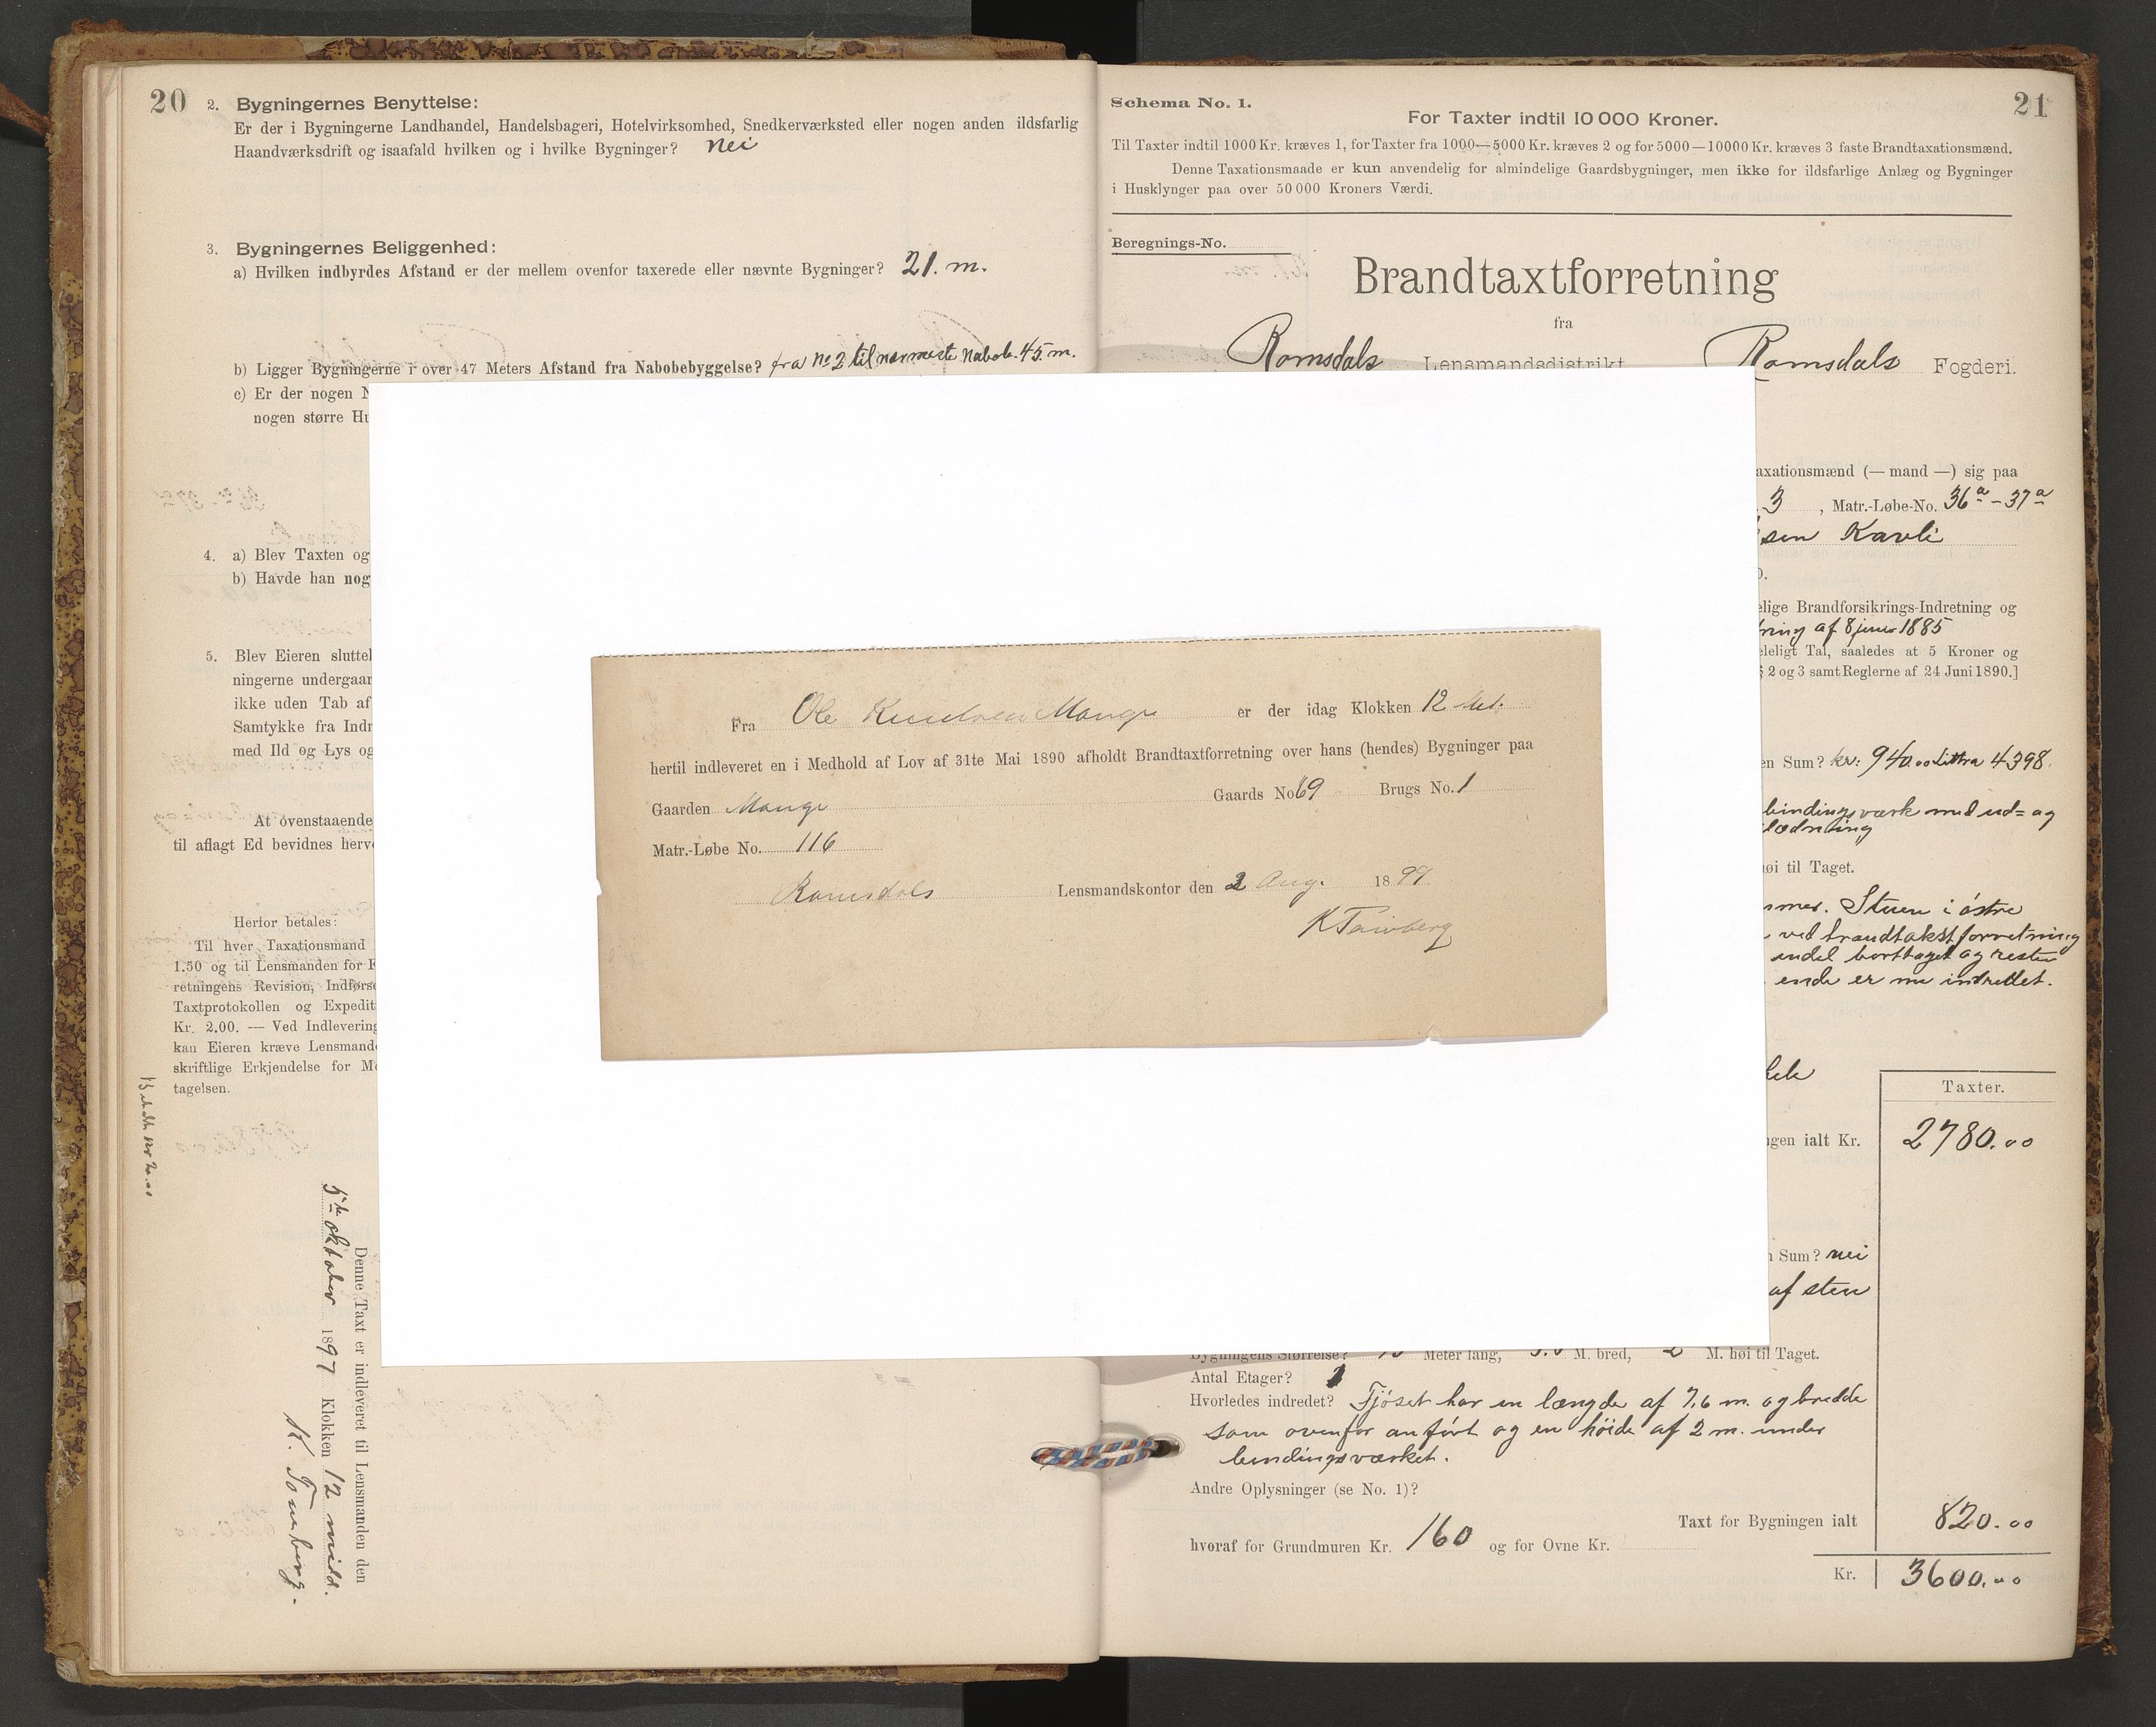 20
2. Bygningernes Benyttelse:
Er der i Bygningerne Landhandel, Handelsbageri, Hotelvirksomhed, Snedkerværksted eller nogen anden ildsfarlig
Haandværksdrift og isaafald hvilken og i hvilke Bygninger? nei
3. Bygningernes Beliggenhed:
a) Hvilken indbyrdes Afstand er der mellem ovenfor taxerede eller nævnte Bygninger? 21. m.
b) Ligger Bygningerne i over 47 Meters Afstand fra Nabobebyggelse? fra No 2 til nærmeste Nabob. 45. m.
c) Er der nogen
nogen større
4. a) Blev Taxten og
b) Havde han nog
5. Blev Eieren sluttel
ningerne undergaar
ikke uden Tab af
Samtykke fra Indr
med Ild og Lys og
At ovenstaaende
til aflagt Ed bevidnes herve
Herfor betales:
Til hver Taxationsmand
1.50 og til Lensmanden for
retningens Revision, Indførse
Taxtprotokollen og Expedit
Kr. 2.00. — Ved Indlevering
kan Eieren kræve Lensmand
skriftlige Erkjendelse for
tagelsen.
Denne Taxt er indleveret til Lensmanden den
5te oktober 1897 Klokken 12 midd.
Fra Ole Knudsen Mange er der idag Klokken 12 Md.
hertil indleveret en i Medhold af Lov af 31te Mai 1890 afholdt Brandtaxtforretning over hans (hendes) Bygninger paa
Gaarden Mange Gaards No 69 Brugs No. 1
Matr.-Løbe No. 116
Romsdals Lensmandskontor den 2 Aug. 1897
21
Schema No. 1.
For Taxter indtil 10 000 Kroner.
Til Taxter indtil 1000 Kr. kræves 1, for Taxter fra 1000—5000 Kr. kræves 2 og for 5000—10000 Kr. kræves 3 faste Brandtaxationsmænd.
Denne Taxationsmaade er kun anvendelig for almindelige Gaardsbygninger, men ikke for ildsfarlige Anlæg og Bygninger
i Husklynger paa over 50 000 Kroners Værdi.
Beregnings-No.
Brandtaxtforretning
fra
Romsdals Lensmandsdistrikt Romsdals Fogderi.
axationsmænd (— mand —) sig paa
3, Matr.-Løbe-No. 36a – 37a
sen Kavli
elige Brandforsikrings-Indretning og
ning af 8 juni 1885
eleligt Tal, saaledes at 5 Kroner og
§ 2 og 3 samt Reglerne af 24 Juni 1890.]
en Sum? kr: 940.00 Littra 4398.
bindingsværk med ud= og
klædning
høi til Taget.
mer. Stuen i østre
ved brandtakstforretning
endel borttaget og resten
ende er nu indredet.
Taxter.
ngen ialt Kr. 2780.00
n Sum? nei
af sten
Bygningens Størrelse? Meter lang, M. bred, 2 M. høi til Taget.
Antal Etager? 1
Hvorledes indredet? Fjøset har en længde af 7,6 m. og bredde
som ovenfor anført og en høide af 2 m. under
bindingsværket.
Andre Oplysninger (se No. 1)?
Taxt for Bygningen ialt 820.00
hvoraf for Grundmuren Kr. 160 og for Ovne Kr.
Kr. 3600.00